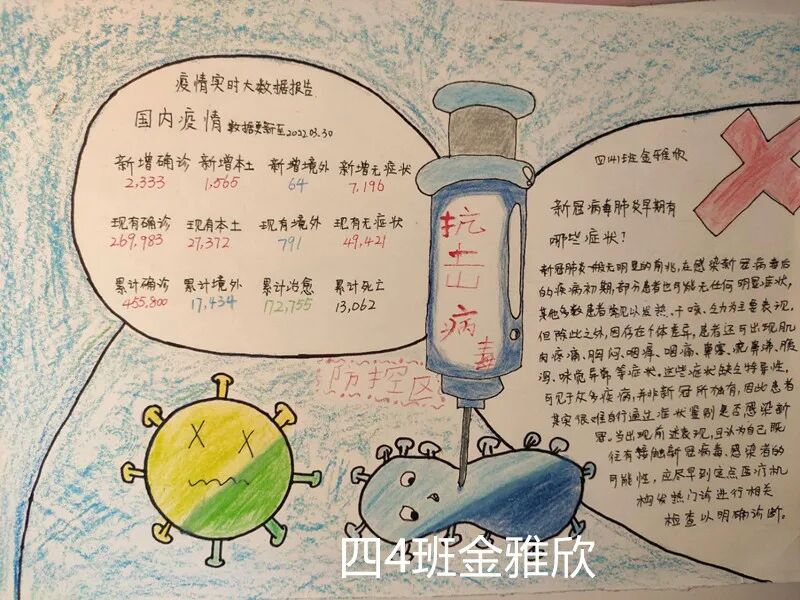 疫情实时大数据报告
国内疫情 数据更新至2022.03.30
新增确诊 新增本土 新增境外 新增无症状
2,333 1,565 64 7,196
现有确诊 现有本土 现有境外 现有无症状
269,983 27,372 791 49,421
累计确诊 累计境外 累计治愈 累计死亡
455,800 17,434 172,755 13,062
抗击病毒
防控区
四(4)班金雅欣
新冠病毒肺炎早期有
哪些症状?
新冠肺炎一般无明显的前兆,在感染新冠病毒后
的疾病初期,部分患者也可能无任何明显症状,
其他多数患者常见以发热、干咳、乏力为主要表现,
但除此之外,因存在个体差异,患者还可出现肌
肉疼痛、胸闷、咽痒、咽痛、鼻塞、流鼻涕、腹
泻、味觉异常等症状,这些症状缺乏特异性,
可见于众多疾病,并非新冠所独有,因此患者
其实很难自行通过症状鉴别是否感染新
冠。当出现前述表现,且认为自己既
往有接触新冠病毒感染者的
可能性,应尽早到定点医疗机
构发热门诊进行相关
检查以明确诊断。
四4班金雅欣